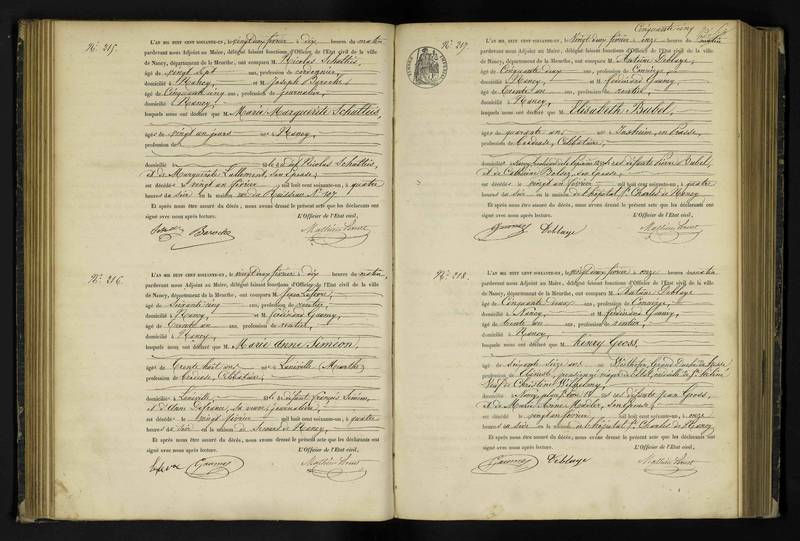 N° 215.
L'AN MIL HUIT CENT SOIXANTE-UN, le vingt deux février à dix heures du matin
pardevant nous Adjoint au Maire, délégué faisant fonctions d'Officier de l'Etat civil de la ville
de Nancy, département de la Meurthe, ont comparu M. Nicolas
âgé de vingt sept ans, profession de
domicilié à Nancy, et M. Joseph
âgé de Cinquante cinq ans, profession de journalier,
domicilié à Nancy,
lesquels nous ont déclaré que M. Marie Marguerite
âgée de vingt un jours né à Nancy,
profession de
domicilié à fille de Nicolas
et de Marguerite Lallement, son épouse,
est décédée le vingt un février mil huit cent soixante-un, à quatre
heures du soir en la maison rue du Ruisseau N° 107
Et après nous être assuré du décès, nous avons dressé le présent acte que les déclarants ont
signé avec nous après lecture. L'Officier de l'Etat civil,
N° 216.
L'AN MIL HUIT CENT SOIXANTE-UN, le vingt deux février à dix heures du matin
pardevant nous Adjoint au Maire, délégué faisant fonctions d'Officier de l'Etat civil de la ville
de Nancy, département de la Meurthe, ont comparu M. Jean Lefevre,
âgé de Soixante cinq ans, profession de rentier,
domicilié à Nancy, et M. ferdinand
âgé de trente un ans, profession de rentier,
domicilié à Nancy,
lesquels nous ont déclaré que M. Marie Anne Siméon,
âgée de trente huit ans née à Lunéville (Meurthe)
profession de Célibataire,
domicilié à fille de défunt françois Siméon,
et d'Anne sa veuve, journalière,
est décédée le vingt février mil huit cent soixante-un, à quatre
heures du soir en la maison de Secours de Nancy,
Et après nous être assuré du décès, nous avons dressé le présent acte que les déclarants ont
signé avec nous après lecture. L'Officier de l'Etat civil,
Cinquante cinq
N° 217.
L'AN MIL HUIT CENT SOIXANTE-UN, le vingt deux février à onze heures du matin
pardevant nous Adjoint au Maire, délégué faisant fonctions d'Officier de l'Etat civil de la ville
de Nancy, département de la Meurthe, ont comparu M. Antoine Deblaye,
âgé de Cinquante deux ans, profession de Concierge,
domicilié à Nancy, et M. ferdinand
âgé de trente un ans, profession de rentier,
domicilié à Nancy,
lesquels nous ont déclaré que M. Elisabeth Bubel,
âgée de quarante ans née à en Prusse,
profession de Célibataire,
domicilié à Nancy, fille des défunts Pierre Bubel,
et de Catherine son épouse,
est décédée le vingt un février mil huit cent soixante-un, à quatre
heures du soir en la maison de l'hôpital St Charles de Nancy
Et après nous être assuré du décès, nous avons dressé le présent acte que les déclarants ont
signé avec nous après lecture. L'Officier de l'Etat civil,
Deblaye
N° 218.
L'AN MIL HUIT CENT SOIXANTE-UN, le vingt deux février à onze heures du matin
pardevant nous Adjoint au Maire, délégué faisant fonctions d'Officier de l'Etat civil de la ville
de Nancy, département de la Meurthe, ont comparu M. Antoine Deblaye
âgé de Cinquante deux ans, profession de Concierge,
domicilié à Nancy, et M. ferdinand
âgé de trente un ans, profession de rentier,
domicilié à Nancy,
lesquels nous ont déclaré que M. Henry Gross,
âgé de Soixante seize ans né à Grand Duché de
profession de
Veuf de Christine
domicilié à Nancy, fils des défunts Jean Gross,
et de Marie Anne son épouse,
est décédé le vingt un février mil huit cent soixante-un, à onze
heures du soir en la maison de l'hôpital St Charles de Nancy
Et après nous être assuré du décès, nous avons dressé le présent acte que les déclarants ont
signé avec nous après lecture. L'Officier de l'Etat civil,
Deblaye